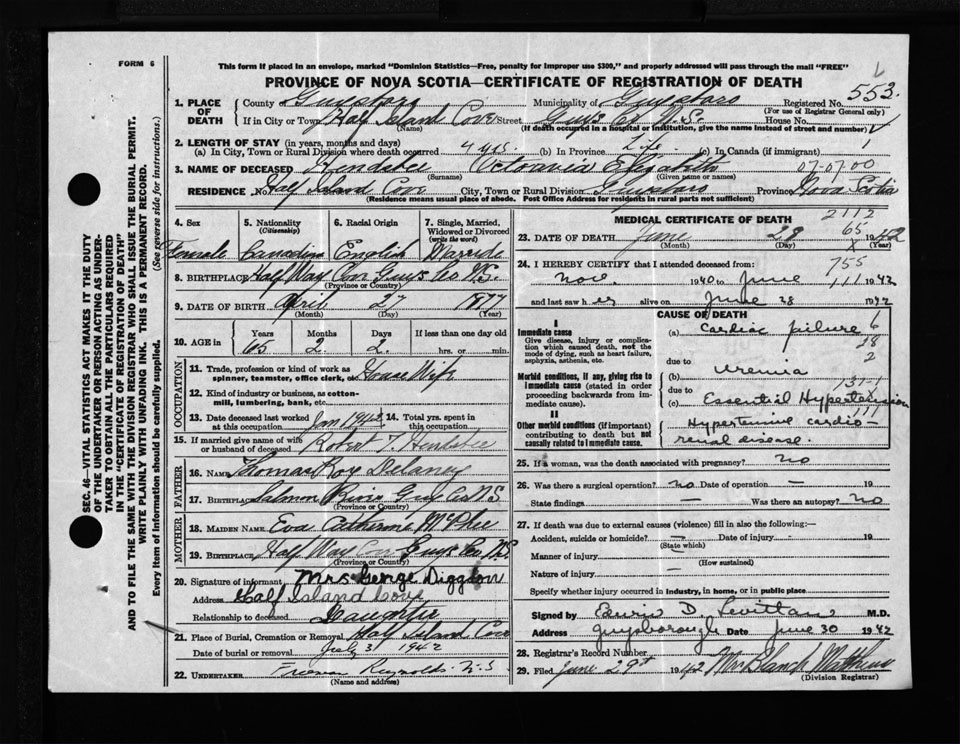 FORM 6
This form if placed in an envelope, marked "Dominion Statistics—Free, penalty for improper use $300," and properly addressed will pass through the mail "FREE"
PROVINCE OF NOVA SCOTIA—CERTIFICATE OF REGISTRATION OF DEATH
553
1. PLACE OF DEATH
County Guysboro Municipality of Guysboro Registered No.
(For use of Registrar General only)
If in City or Town Half Island Cove Street Guys Co N.S. House No.
(Name) (If death occurred in a hospital or institution, give the name instead of street and number)
2. LENGTH OF STAY (in years, months and days)
(a) In City, Town or Rural Division where death occurred 4 yrs. (b) In Province Life (c) In Canada (if immigrant) 1
3. NAME OF DECEASED Victoria Elizabeth 07-07-00
(Surname) (Given name or names)
RESIDENCE No. Half Island Cove City, Town or Rural Division Guysboro Province Nova Scotia
(Residence means usual place of abode. Post Office Address for residents in rural parts not sufficient)
4. Sex 5. Nationality (Citizenship) 6. Racial Origin 7. Single, Married, Widowed or Divorced (write the word)
Female Canadian English Married
8. BIRTHPLACE Half Way Cove Guys Co N.S.
(Province or Country)
9. DATE OF BIRTH April 27 1877
(Month) (Day) (Year)
10. AGE in Years Months Days If less than one day old
65 2 2 hrs. or min.
OCCUPATION
11. Trade, profession or kind of work as spinner, teamster, office clerk, etc. House Wife
12. Kind of industry or business, as cotton-mill, lumbering, bank, etc.
13. Date deceased last worked at this occupation Jan 1942 14. Total yrs. spent in this occupation
15. If married give name of wife or husband of deceased Robert T.
FATHER
16. NAME Thomas Roy Delaney
17. BIRTHPLACE Salmon River Guy Co NS
(Province or Country)
MOTHER
18. MAIDEN NAME Eva Catherine McPhee
19. BIRTHPLACE Half Way Cove Guys Co. N.S.
(Province or Country)
20. Signature of informant Mrs George Diggdon
Address Half Island Cove
Relationship to deceased Daughter
21. Place of Burial, Cremation or Removal Half Island Cove
Date of burial or removal July 31 1942
22. UNDERTAKER Reynolds N.S
(Name and address)
MEDICAL CERTIFICATE OF DEATH
2112
65
x
23. DATE OF DEATH June 29 1942
(Month) (Day) (Year)
755
24. I HEREBY CERTIFY that I attended deceased from:
Nov. 1940 to June 1942
111
and last saw her alive on June 28 1942
CAUSE OF DEATH
I
Immediate cause
Give disease, injury or complication which caused death, not the mode of dying, such as heart failure, asphyxia, asthenia, etc.
(a) Cardiac failure
6
28
2
due to
Morbid conditions, if any, giving rise to immediate cause (stated in order proceeding backwards from immediate cause).
(b) Uremia
131-1
due to
(c) Essential Hypertension
111
II
Other morbid conditions (if important) contributing to death but not causally related to immediate cause.
Hypertensive cardio-renal disease.
25. If a woman, was the death associated with pregnancy? no
26. Was there a surgical operation? no Date of operation — 19
State findings — Was there an autopsy? No
27. If death was due to external causes (violence) fill in also the following:—
Accident, suicide or homicide? — Date of injury - 19
(State which)
Manner of injury —
(How sustained)
Nature of injury —
Specify whether injury occurred in Industry, in home, or in public place
Signed by D. Levittan M.D.
Address Guysborough Date June 30 1942
28. Registrar's Record Number
29. Filed June 29th 1942 Mrs Blanch Matthews
(Division Registrar)
SEC. 46—VITAL STATISTICS ACT MAKES IT THE DUTY OF THE UNDERTAKER OR PERSON ACTING AS UNDERTAKER TO OBTAIN ALL THE PARTICULARS REQUIRED IN THE "CERTIFICATE OF REGISTRATION OF DEATH" AND TO FILE THE SAME WITH THE DIVISION REGISTRAR WHO SHALL ISSUE THE BURIAL PERMIT.
WRITE PLAINLY WITH UNFADING INK. THIS IS A PERMANENT RECORD.
Every item of information should be carefully supplied. (See reverse side for instructions.)